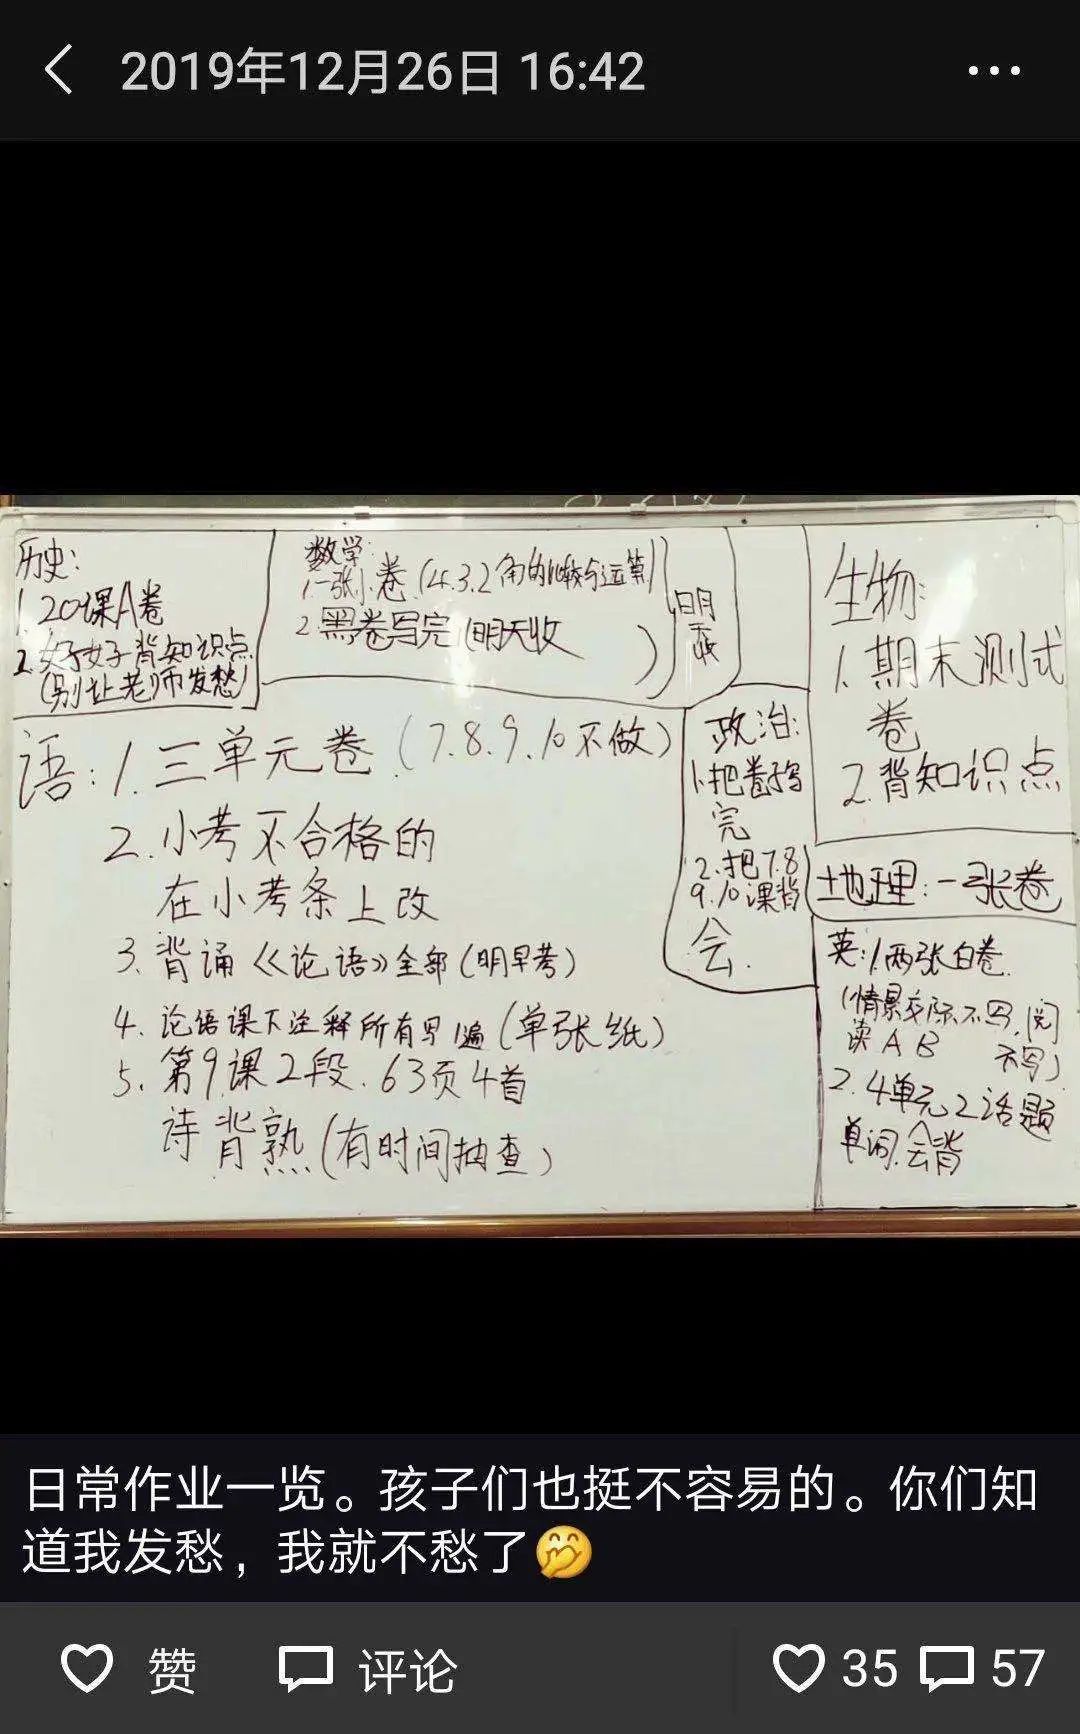 2019年12月26日 16:42
历史:
1. 20课A卷
2. 好好背知识点
(别让老师发愁)
数学:
1.一张小卷(4.3.2角的比较与运算)
2.黑卷写完(明天收
)
明
天
收
语:1.三单元卷(7.8.9.10不做)
2.小考不合格的
在小考条上改
3.背诵《论语》全部(明早考)
4.论语课下注释所有写1遍(单张纸)
5.第9课2段.63页4首
诗背熟(有时间抽查)
政治:
1.把卷子写
完
2.把7.8
9.10课背
会.
生物:
1.期末测试
卷
2.背知识点
地理:一张卷
英:1.两张白卷.
(情景交际不写,阅
读AB 不写)
2.4单元2话题
单词.会背
日常作业一览。孩子们也挺不容易的。你们知
道我发愁，我就不愁了🤭
赞 评论 35 57